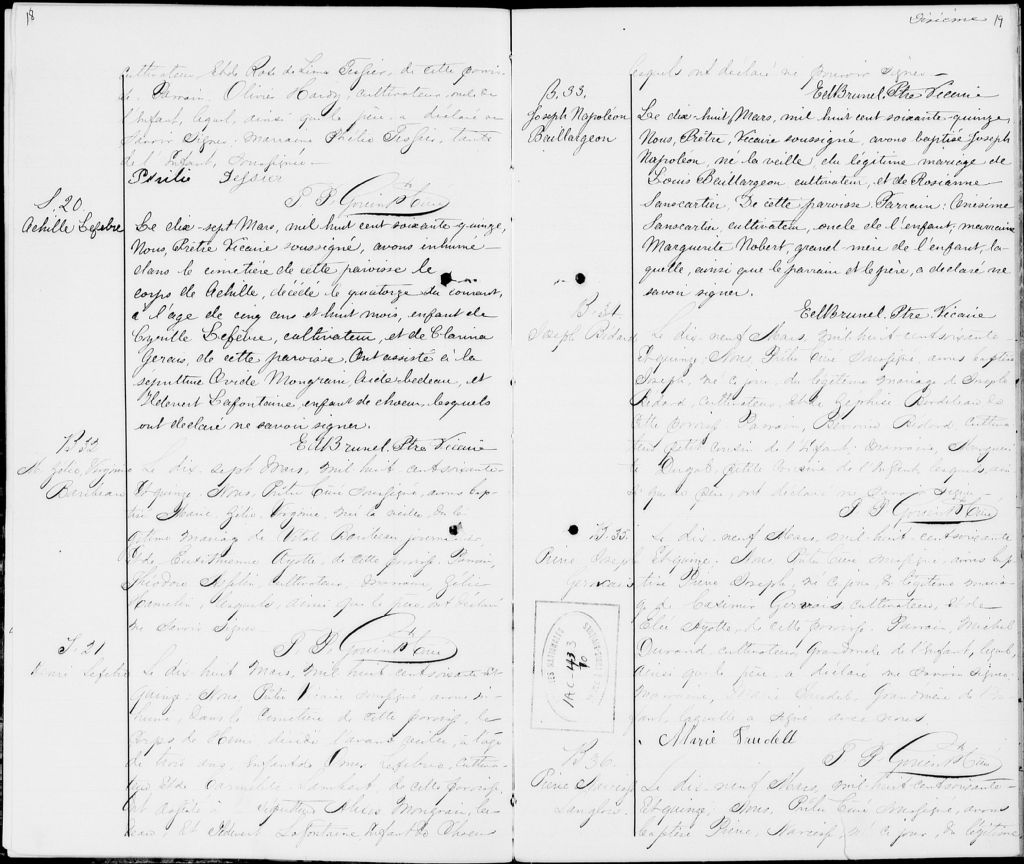 18
cultivateur, Et de Rose de Lima Tessier, de cette parois-
se. Parrain, Olivier Hardy, cultivateur, oncle de
l'Enfant, lequel, ainsi que le père, a déclaré ne
savoir signer. Marraine Philie Tessier, tante
de l'Enfant, soussignée
Philie Tessier
Ptre Curé
S. 20
Achille Lefebvre
Le dix-sept Mars, mil huit cent soixante-quinze,
Nous, Prêtre Vicaire soussigné, avons inhumé
dans le cimetière de cette paroisse le
corps de Achille, décédé le quatorze du courant,
à l'âge de cinq ans et huit mois, enfant de
Cyrille Lefebvre, cultivateur, et de Clarina
Gervais, de cette paroisse. Ont assisté à la
sépulture Ovide Mongrain, Aide bedeau, et
Hildevert Lafontaine, enfant de choeur, lesquels
ont déclaré ne savoir signer.
Ed Brunel, Ptre Vicaire
B. 32
M. Gélie, Virginie
Baribeau
Le dix-sept Mars, mil huit cent soixante
Et quinze, Nous, Prêtre Curé soussigné, avons bap-
tisé Marie, Gélie, Virginie, née la veille, du lé-
gitime mariage de Vital Baribeau journalier
Et de Ayotte, de cette paroisse. Parrain,
Théodore cultivateur, marraine, Gélie
Hamelin, lesquels, ainsi que le père, ont déclaré
ne savoir signer
Ptre Curé
S. 21
Henri Lefebvre
Le dix huit Mars, mil huit cent soixante Et
quinze, Nous Prêtre Vicaire soussigné avons in-
humé, dans le cimetière de cette paroisse, le
corps de Henri, décédé l'avant veille, à l'âge
de trois ans, Enfant de Omer Lefebvre, cultiva-
teur, Et de Carmélite Lambert, de cette paroisse,
Ont assisté à la sépulture Mongrain, be-
deau, Et Hildevert Lafontaine, Enfant de Choeur
Sixième 19
lesquels ont déclaré ne pouvoir signer
Ed Brunel, Ptre Vicaire
B. 33.
Joseph Napoléon
Baillargeon
Le dix-huit Mars, mil huit cent soixante-quinze,
Nous, Prêtre, Vicaire soussigné, avons baptisé Joseph
Napoleon, né la veille du légitime mariage de
Louis Beillargeon cultivateur, et de Rosianne
Sanscartier, De cette paroisse. Parrain: Onésime
Sanscartier, cultivateur, oncle de l'enfant, marraine
Marguerite Nobert grand mère de l'enfant, la-
quelle, ainsi que le parrain et le père, a declaré ne
savoir signer.
Ed Brunel, Ptre. Vicaire
B. 34
Joseph Bédard
Le dix-neuf Mars, mil huit cent soixante
Et quinze Nous, Prêtre Curé soussigné, avons baptisé
Joseph, né ce jour, du légitime mariage de Joseph
Bédard, cultivateur, Et de Bordeleau de
cette paroisse. Parrain, Bédard cultiva-
teur, petit cousin de l'Enfant, marraine, Margueri-
te Dugal, petite cousine de l'Enfant, lesquels, ain-
si que le père, ont déclaré ne savoir signer
Ptre Curé
B. 35.
Pierre Joseph
Gervais
Le dix-neuf Mars, mil huit cent soixante
Et quinze, Nous, Prêtre Curé, soussigné, avons bap-
tisé Pierre Joseph, né ce jour, du légitime maria-
ge de Casimir Gervais, cultivateur, Et de
Ayotte, de cette paroisse. Parrain, Michel
Durand cultivateur, de l'Enfant, lequel,
ainsi que le père, a déclaré ne savoir signer
Marraine, Marie Trudel, Grand'mère de l'En-
fant, laquelle a signé avec nous.
Marie Trudell
Ptre Curé
B. 36.
Pierre Narcisse
Langlois
Le dix-neuf Mars, mil huit cent soixante
Et quinze, Nous, Prêtre Curé soussigné, avons
baptisé Pierre, Narcisse, né ce jour, du légitime